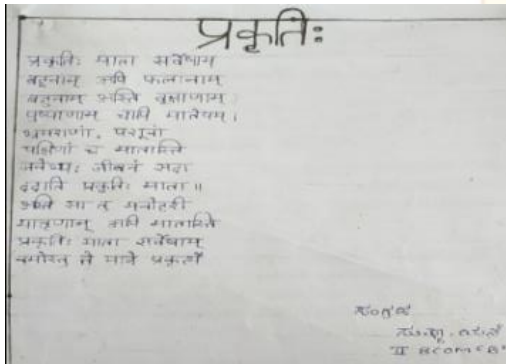 प्रकृतिः
प्रकृतिः माता सर्वेषाम्
बहूनाम् अपि फलानाम्
बहूनाम् अस्ति वृक्षाणाम्
पुष्पाणाम् चापि मातेयम्।
भ्रमराणां, पशूनां
पक्षिणां च मातास्ति
जनेभ्यः जीवनं सदा
ददाति प्रकृतिः माता॥
अति सा तु मनोहरी
मातॄणाम् अपि मातास्ति
प्रकृतिः माता सर्वेषाम्
नमोस्तु ते मात्रे प्रकृत्यै
ಸಂಗ್ರಹ
II BCOM 'B'